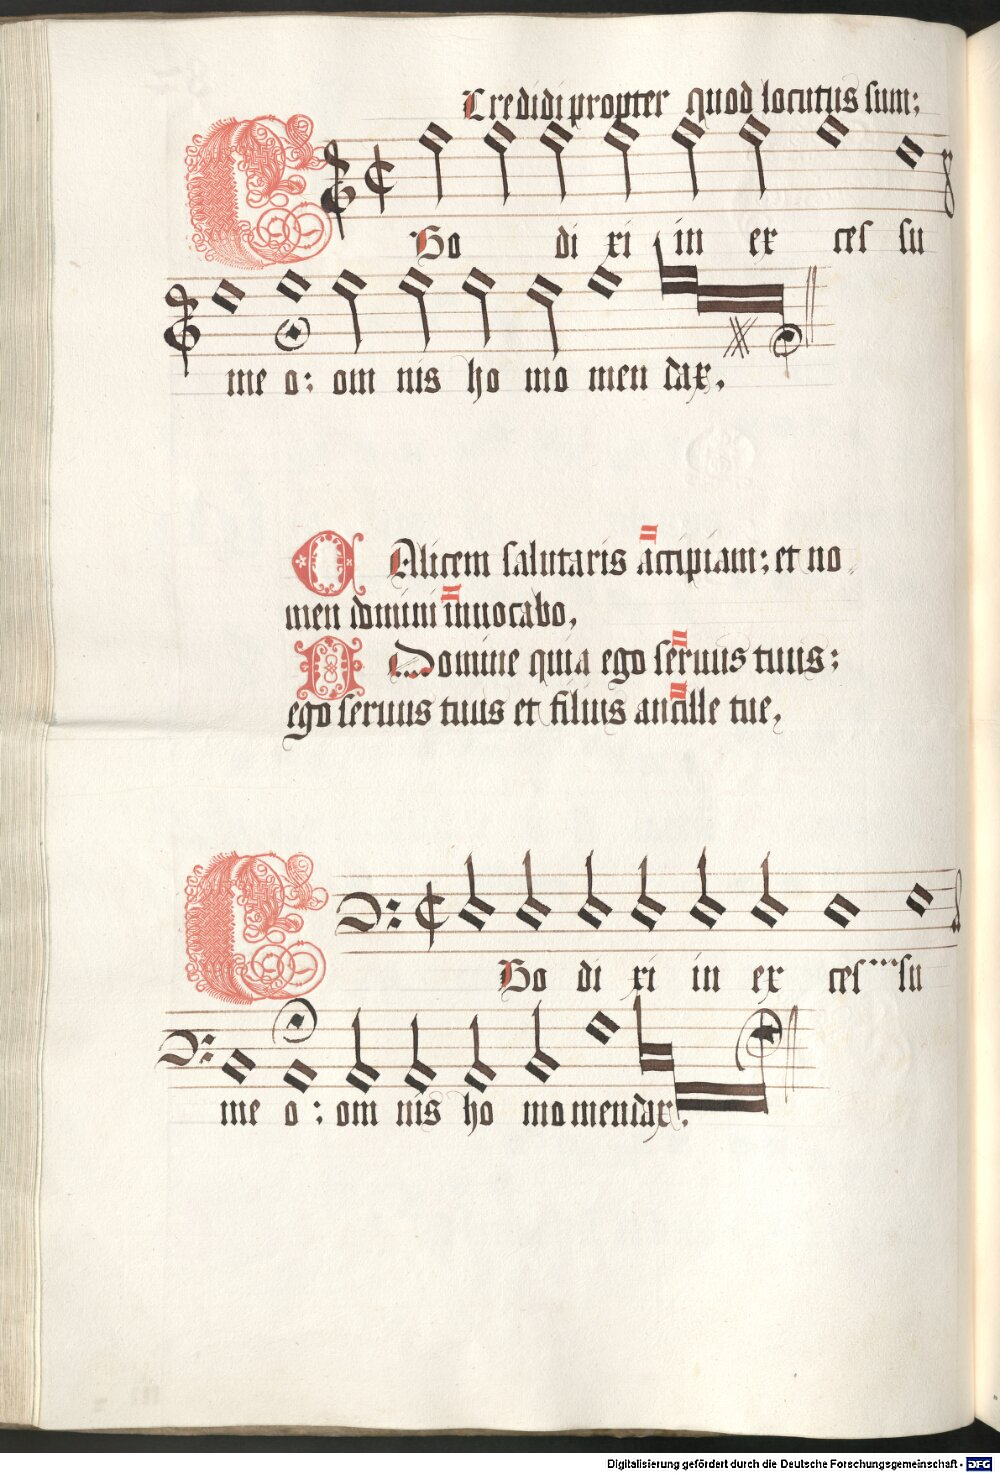 Credidi propter quod locutus sum:
Ego di xi in ex ces su
me o: om nis ho mo men dax.
Calicem salutaris accipiam: et no
men domini invocabo.
O Domine quia ego servus tuus:
ego servus tuus et filius ancille tue.
Ego di xi in ex ces su
me o: om nis ho mo mendax.
Digitalisierung gefördert durch die Deutsche Forschungsgemeinschaft - DFG